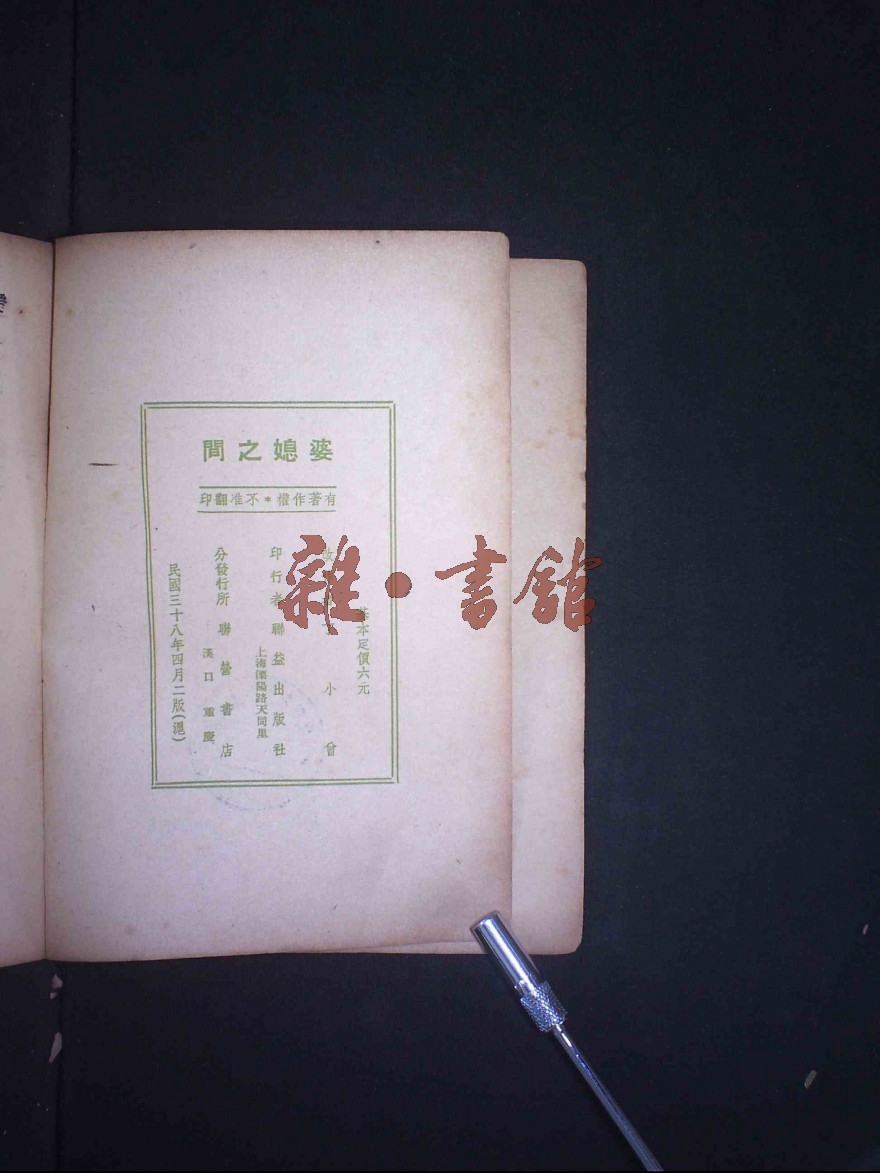 婆媳之間
有著作權＊不准翻印
基本定價六元
改 小曾
印行者 聯益出版社
上海溧陽路天同里
分發行所 聯營書店
漢口 重慶
民國三十八年四月二版(滬)
雜·書館